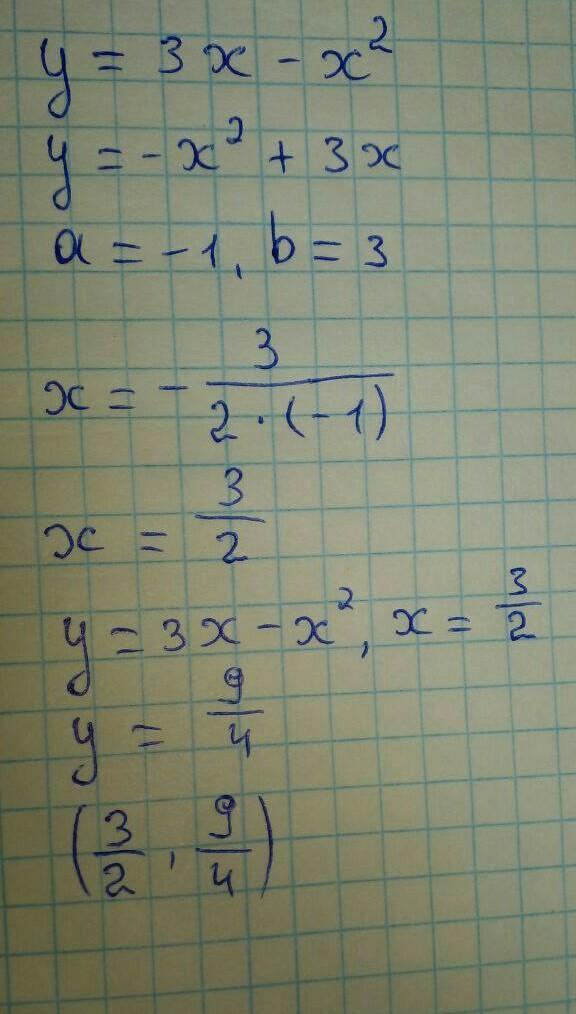 y = 3x - x²
y = -x² + 3x
a = -1, b = 3
x = - 3/(2·(-1))
x = 3/2
y = 3x - x², x = 3/2
y = 9/4
(3/2, 9/4)